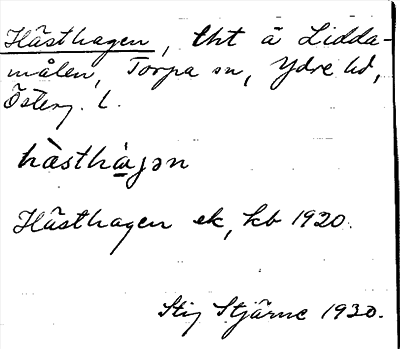 Hästhagen, tht ä Lidda-
målen, Torpa sn, Ydre hd,
Österg. l.
hàsthàgən
Hästhagen ek, kb 1920.
Stig Stjärne 1930.